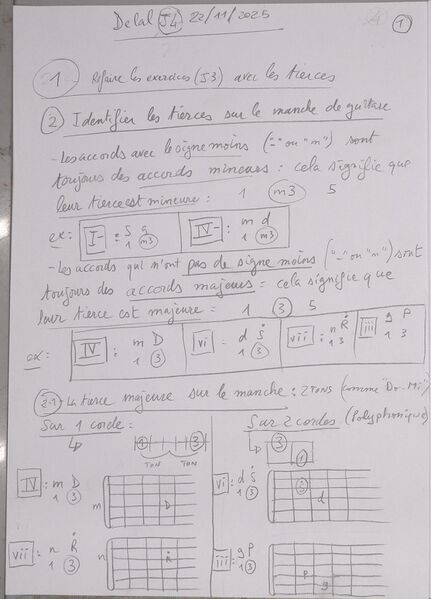 Delal J4 22/11/2025
①
1- Refaire les exercices (J3) avec les tierces
② Identifier les tierces sur le manche de guitare
- Les accords avec le signe moins ("-" ou "m") sont
toujours des accords mineurs : cela signifie que
leur tierce est mineure : 1 m3 5
ex : I- : S g IV- : m d
1 m3 1 m3
- Les accords qui n'ont pas de signe moins ("-" ou "m") sont
toujours des accords majeurs : cela signifie que
leur tierce est majeure = 1 ③ 5
ex : IV : m D vi - d Ṡ vii : n Ṙ iii g P
1 ③ 1 ③ 1 3 1 3
2.1 La tierce majeure sur le manche : 2 TONS (comme "Do-Mi")
Sur 1 corde : Sur 2 cordes (Polyphonique)
① ③ ③
TON TON ①
IV : m D m D vi : d Ṡ Ṡ d
1 ③ 1 ③
vii : n Ṙ n Ṙ iii : g P P g
1 ③ 1 ③